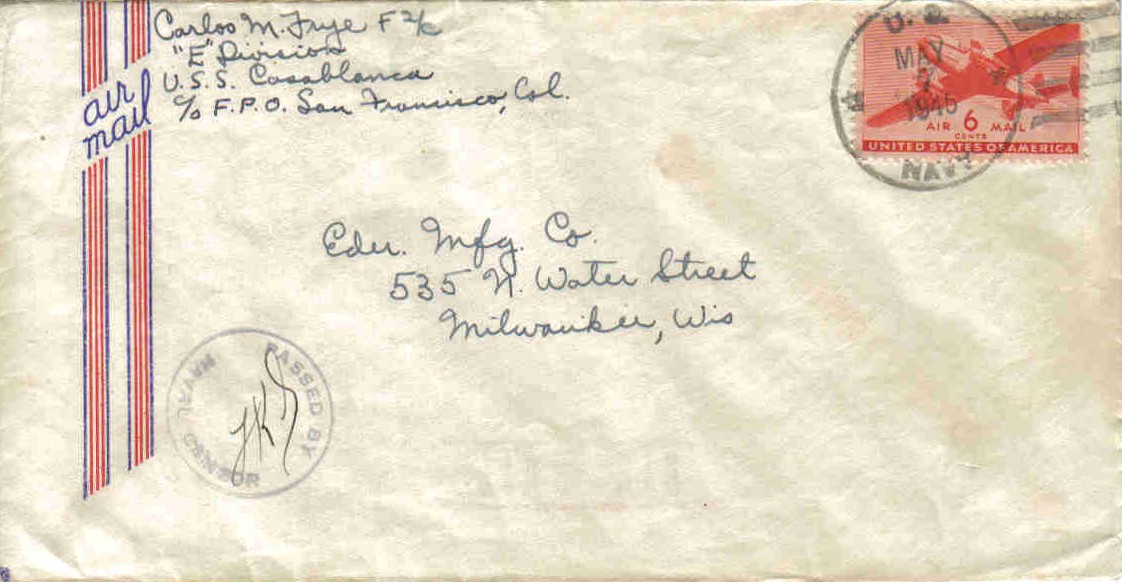 Carlos M. Frye F 2/c
"E" Division
U.S.S. Casablanca
c/o F.P.O. San Francisco, Cal.
air
mail
U.S.
MAY
7
1945
NAVY
AIR 6 MAIL
CENTS
UNITED STATES OF AMERICA
Eder. Mfg. Co.
535 N. Water Street
Milwaukee, Wis
PASSED BY
NAVAL CENSOR